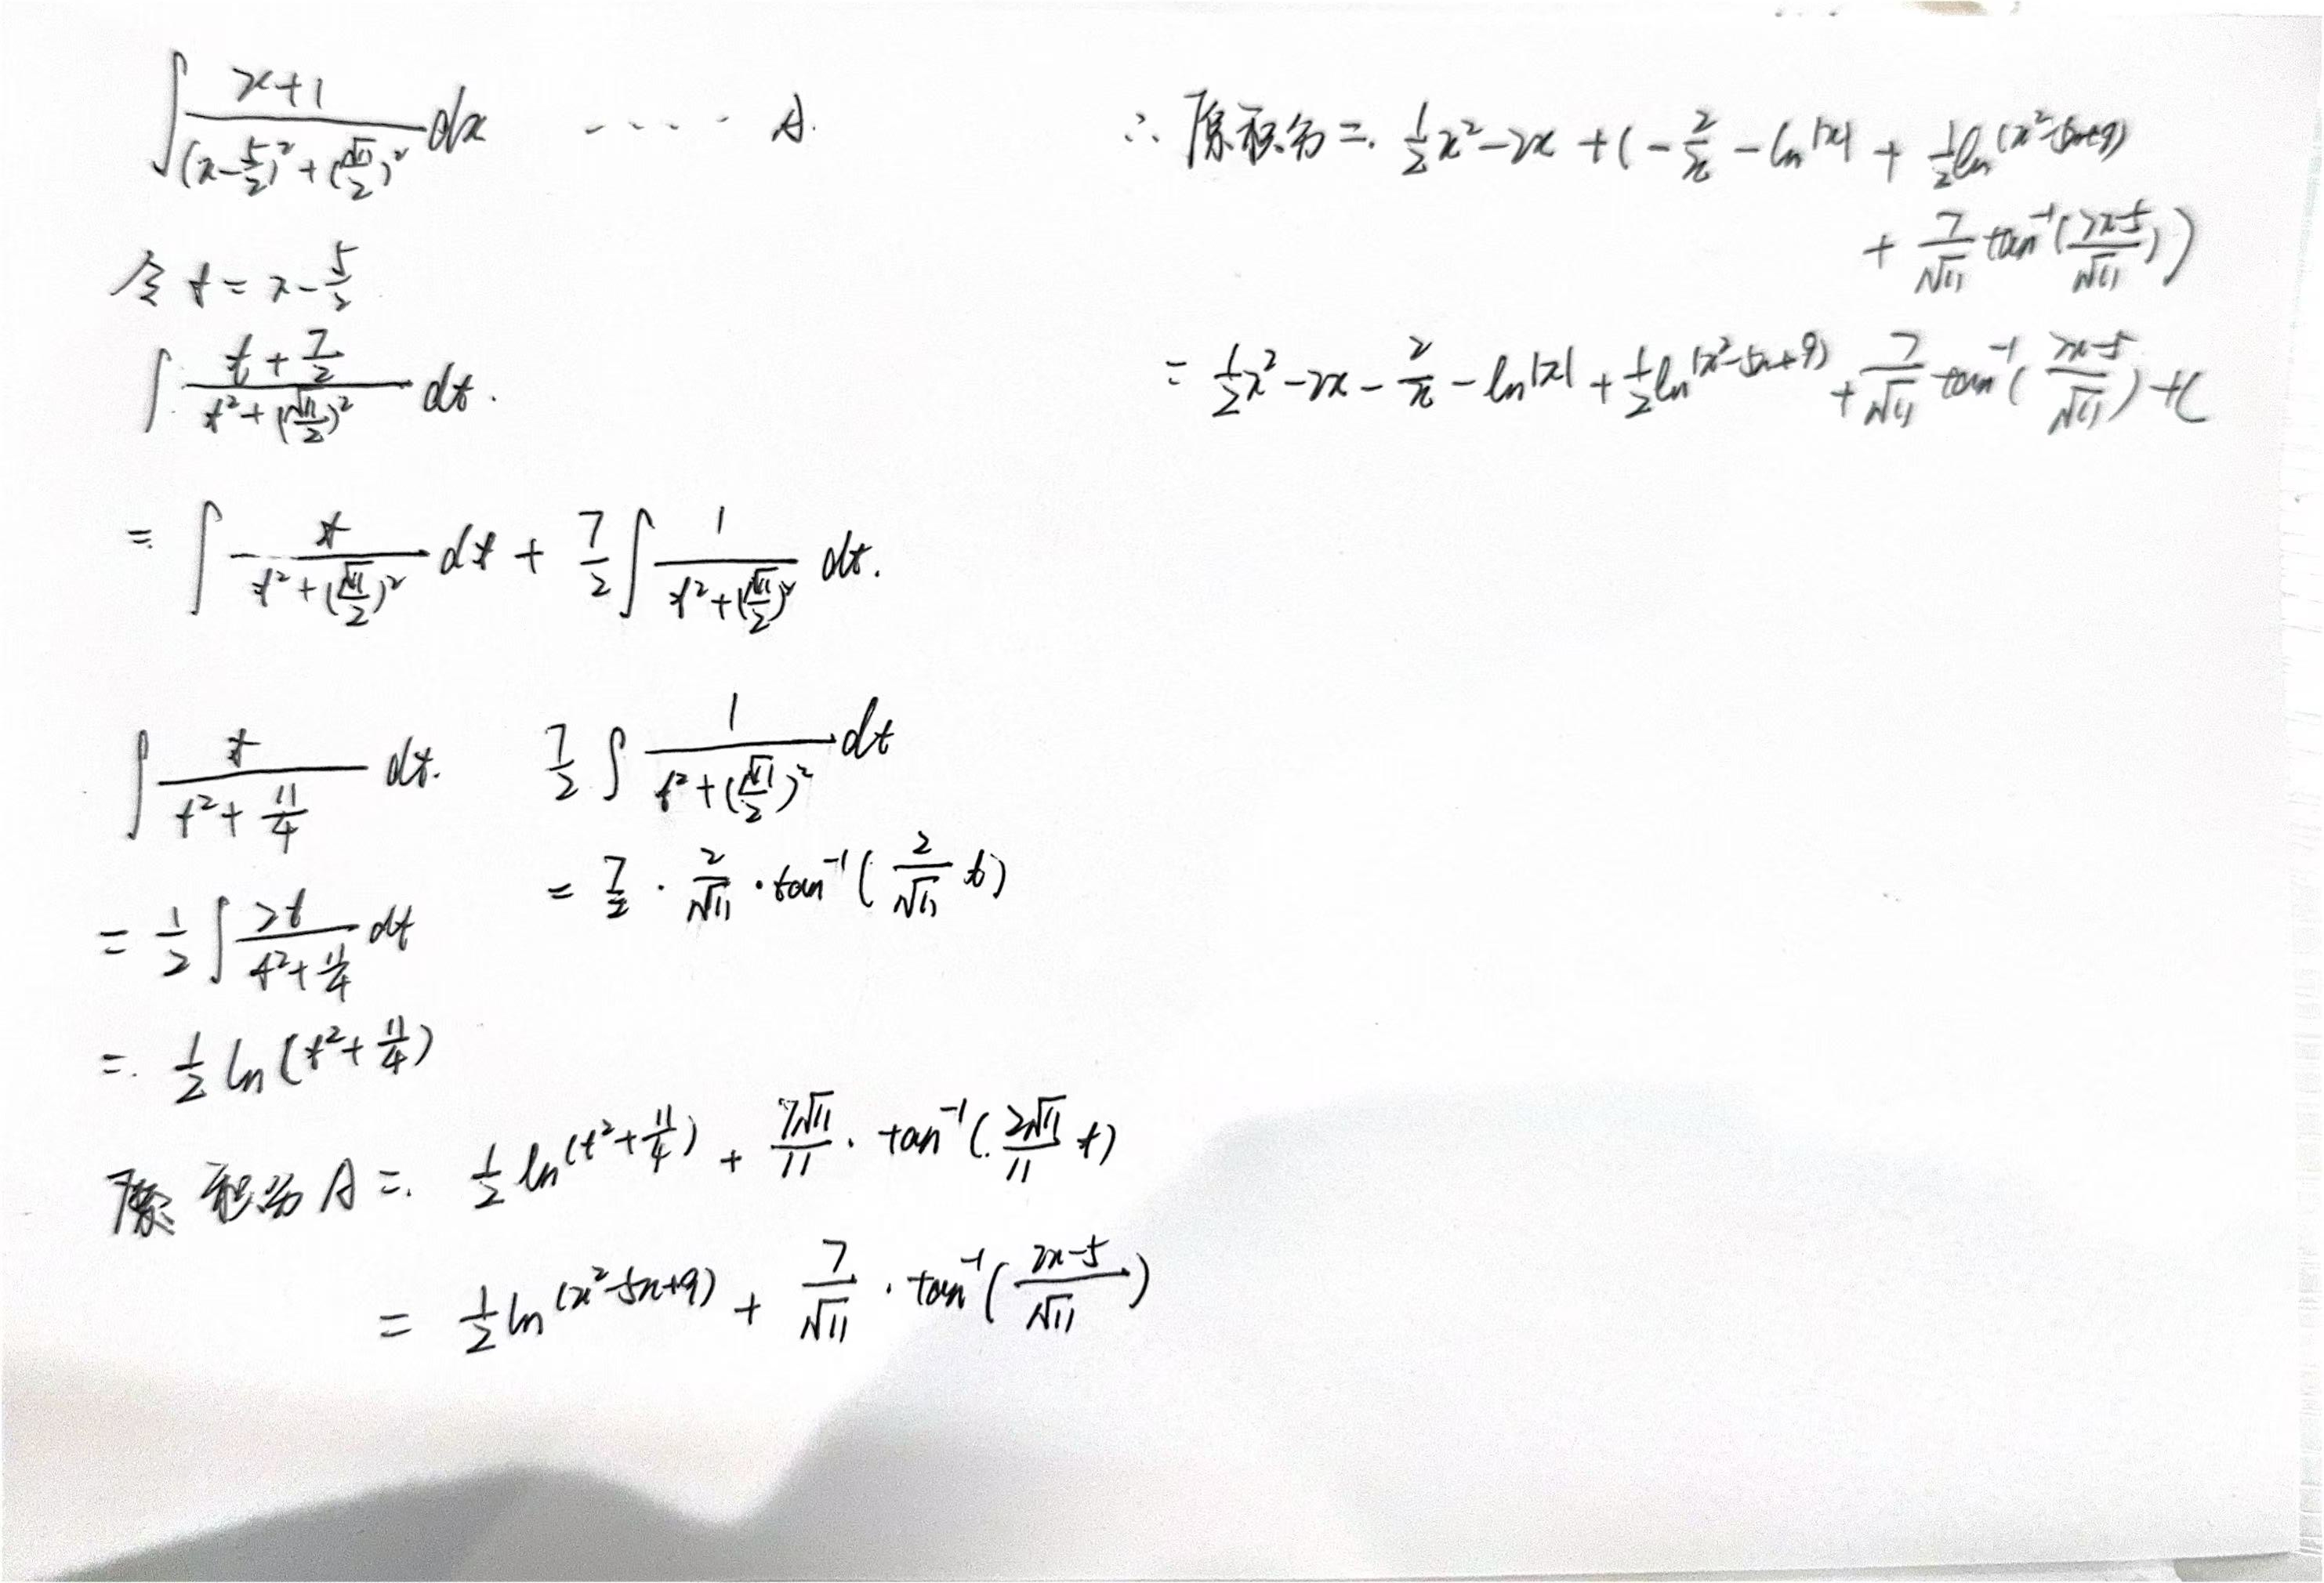 ∫ (x+1)/((x-5/2)²+(√11/2)²) dx ····· A.
令 t = x - 5/2
∫ (t+7/2)/(t²+(√11/2)²) dt.
= ∫ t/(t²+(√11/2)²) dt + 7/2 ∫ 1/(t²+(√11/2)²) dt.
∫ t/(t²+11/4) dt.
= 1/2 ∫ 2t/(t²+11/4) dt
= 1/2 ln (t²+11/4)
7/2 ∫ 1/(t²+(√11/2)²) dt
= 7/2 · 2/√11 · tan⁻¹ (2/√11 t)
原积分 A = 1/2 ln (t²+11/4) + 7√11/11 · tan⁻¹ (2√11/11 t)
= 1/2 ln (x²-5x+9) + 7/√11 · tan⁻¹ ((2x-5)/√11)
∴ 原积分 = 1/2 x² - 2x + (- 2/x - ln|x| + 1/2 ln (x²-5x+9)
+ 7/√11 tan⁻¹ ((2x-5)/√11))
= 1/2 x² - 2x - 2/x - ln|x| + 1/2 ln (x²-5x+9) + 7/√11 tan⁻¹ ((2x-5)/√11) + C